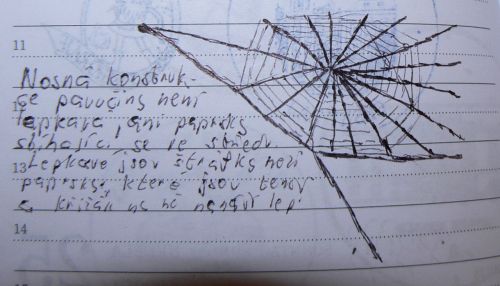 11
Nosná konstruk-
ce pavučiny není
lepkavá, ani paprsky
sbíhající se ve středu.
13 Lepkavé jsou štrafky mezi
paprsky, které jsou tenčí
a křižák na ně nanáší lep.
14